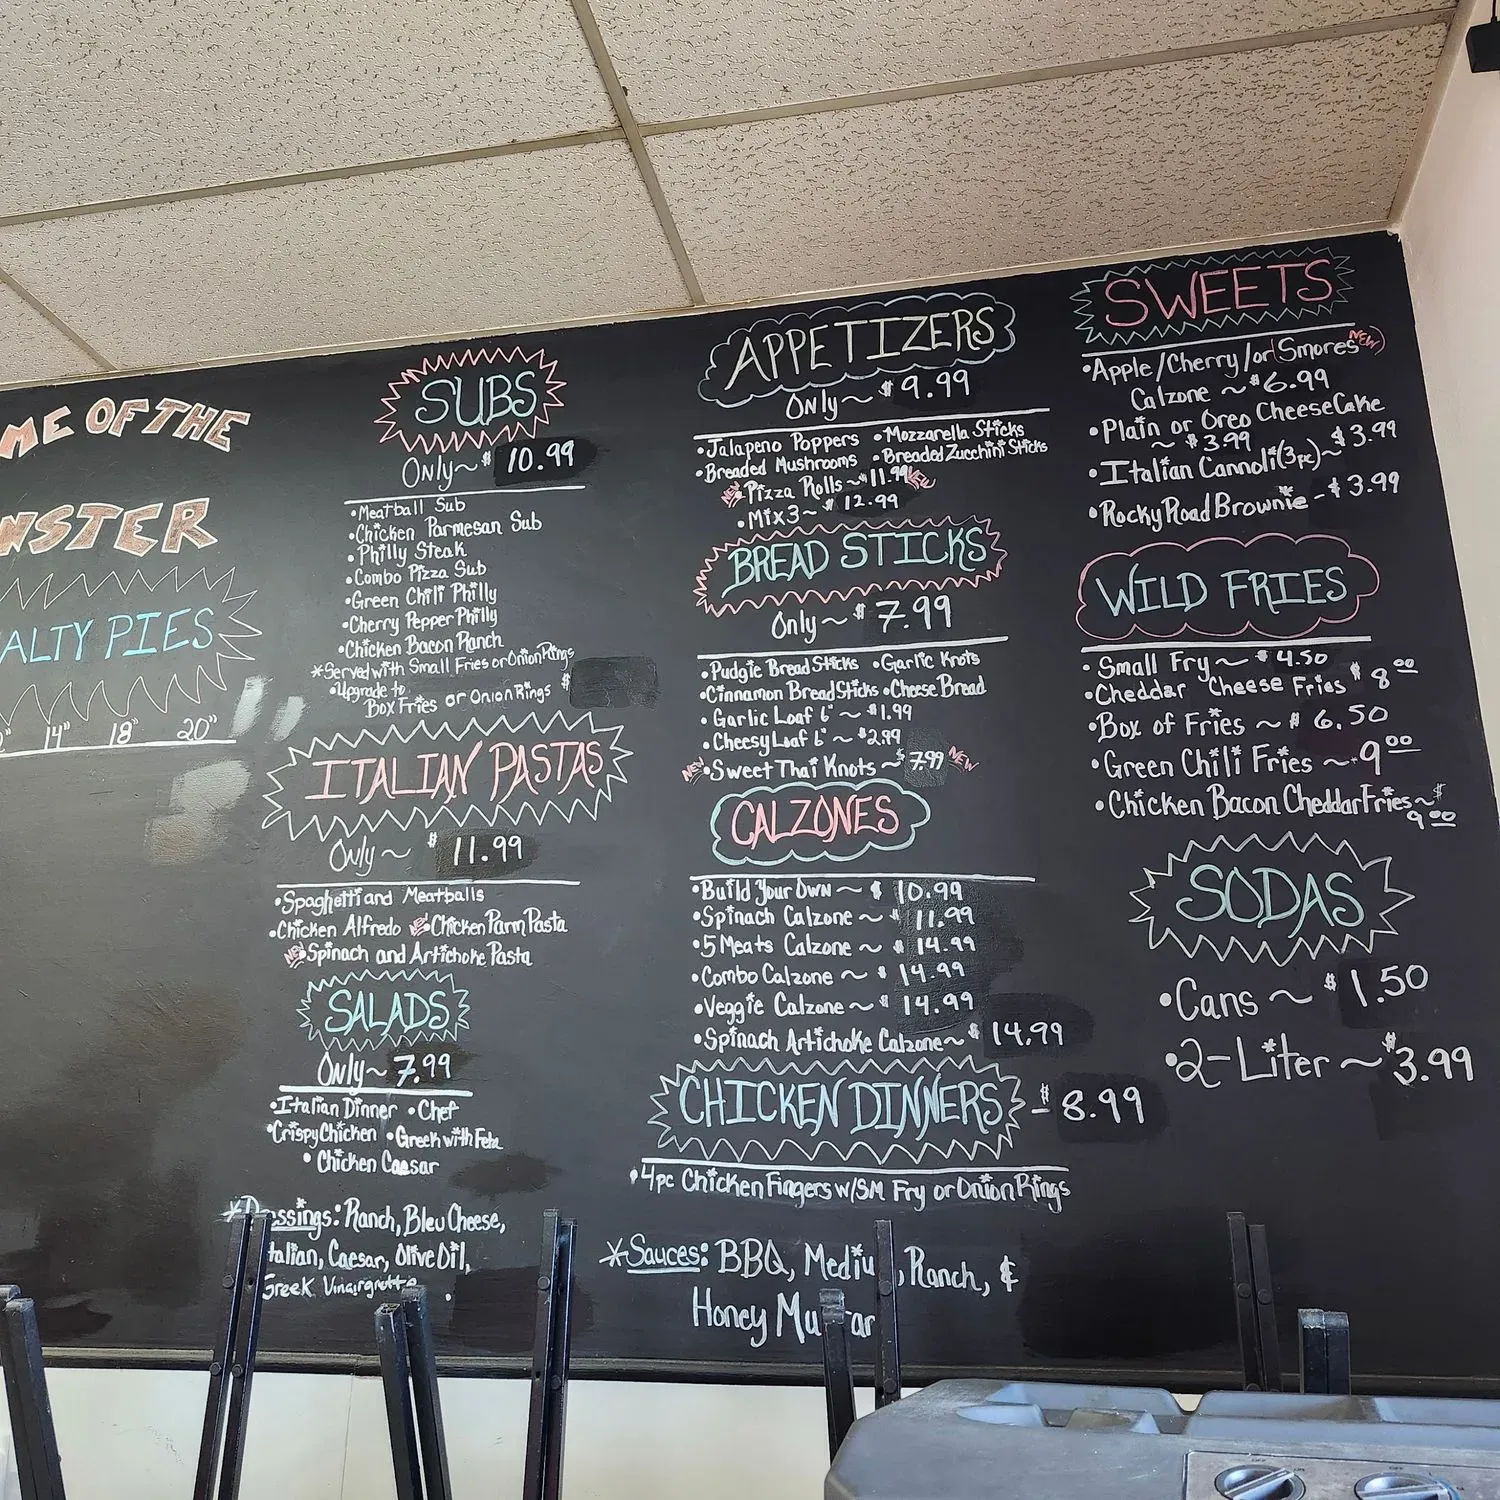 ME OF THE
NSTER
ALTY PIES
14" 18" 20"
SUBS
Only~ $ 10.99
•Meatball Sub
•Chicken Parmesan Sub
•Philly Steak
•Combo Pizza Sub
•Green Chili Philly
•Cherry Pepper Philly
•Chicken Bacon Ranch
*Served with Small Fries or Onion Rings
•Upgrade to
Box Fries or Onion Rings $
ITALIAN PASTAS
Only~ $ 11.99
•Spaghetti and Meatballs
•Chicken Alfredo NEW •Chicken Parm Pasta
NEW •Spinach and Artichoke Pasta
SALADS
Only~ 7.99
•Italian Dinner •Chef
•Crispy Chicken •Greek with Feta
•Chicken Caesar
*Dressings: Ranch, Bleu Cheese,
Italian, Caesar, Olive Oil,
Greek Vinaigrette
APPETIZERS
Only~ $ 9.99
•Jalapeno Poppers •Mozzarella Sticks
•Breaded Mushrooms •Breaded Zucchini Sticks
NEW •Pizza Rolls ~$11.99 NEW
•Mix 3~ $ 12.99
BREAD STICKS
Only~ $ 7.99
•Pudgie Bread Sticks •Garlic Knots
•Cinnamon Bread Sticks •Cheese Bread
•Garlic Loaf 6" ~ $1.99
•Cheesy Loaf 6" ~ $2.99
NEW •Sweet Thai Knots ~ $7.99 NEW
CALZONES
•Build Your Own ~ $ 10.99
•Spinach Calzone ~ $ 11.99
•5 Meats Calzone ~ $ 14.99
•Combo Calzone ~ $ 14.99
•Veggie Calzone ~ $ 14.99
•Spinach Artichoke Calzone~ $ 14.99
CHICKEN DINNERS - $8.99
•4pc Chicken Fingers w/SM Fry or Onion Rings
*Sauces: BBQ, Mediu , Ranch, &
Honey Mu tar
SWEETS
•Apple/Cherry/or (Smores NEW)
Calzone ~ $6.99
•Plain or Oreo CheeseCake
~ $3.99
•Italian Cannoli (3pc)~ $3.99
•Rocky Road Brownie - $3.99
WILD FRIES
•Small Fry~ $4.50
•Cheddar Cheese Fries $8.00
•Box of Fries ~ $ 6.50
•Green Chili Fries ~ 9.00
•Chicken Bacon Cheddar Fries~ $
9.00
SODAS
•Cans ~ $ 1.50
•2-Liter ~ $3.99